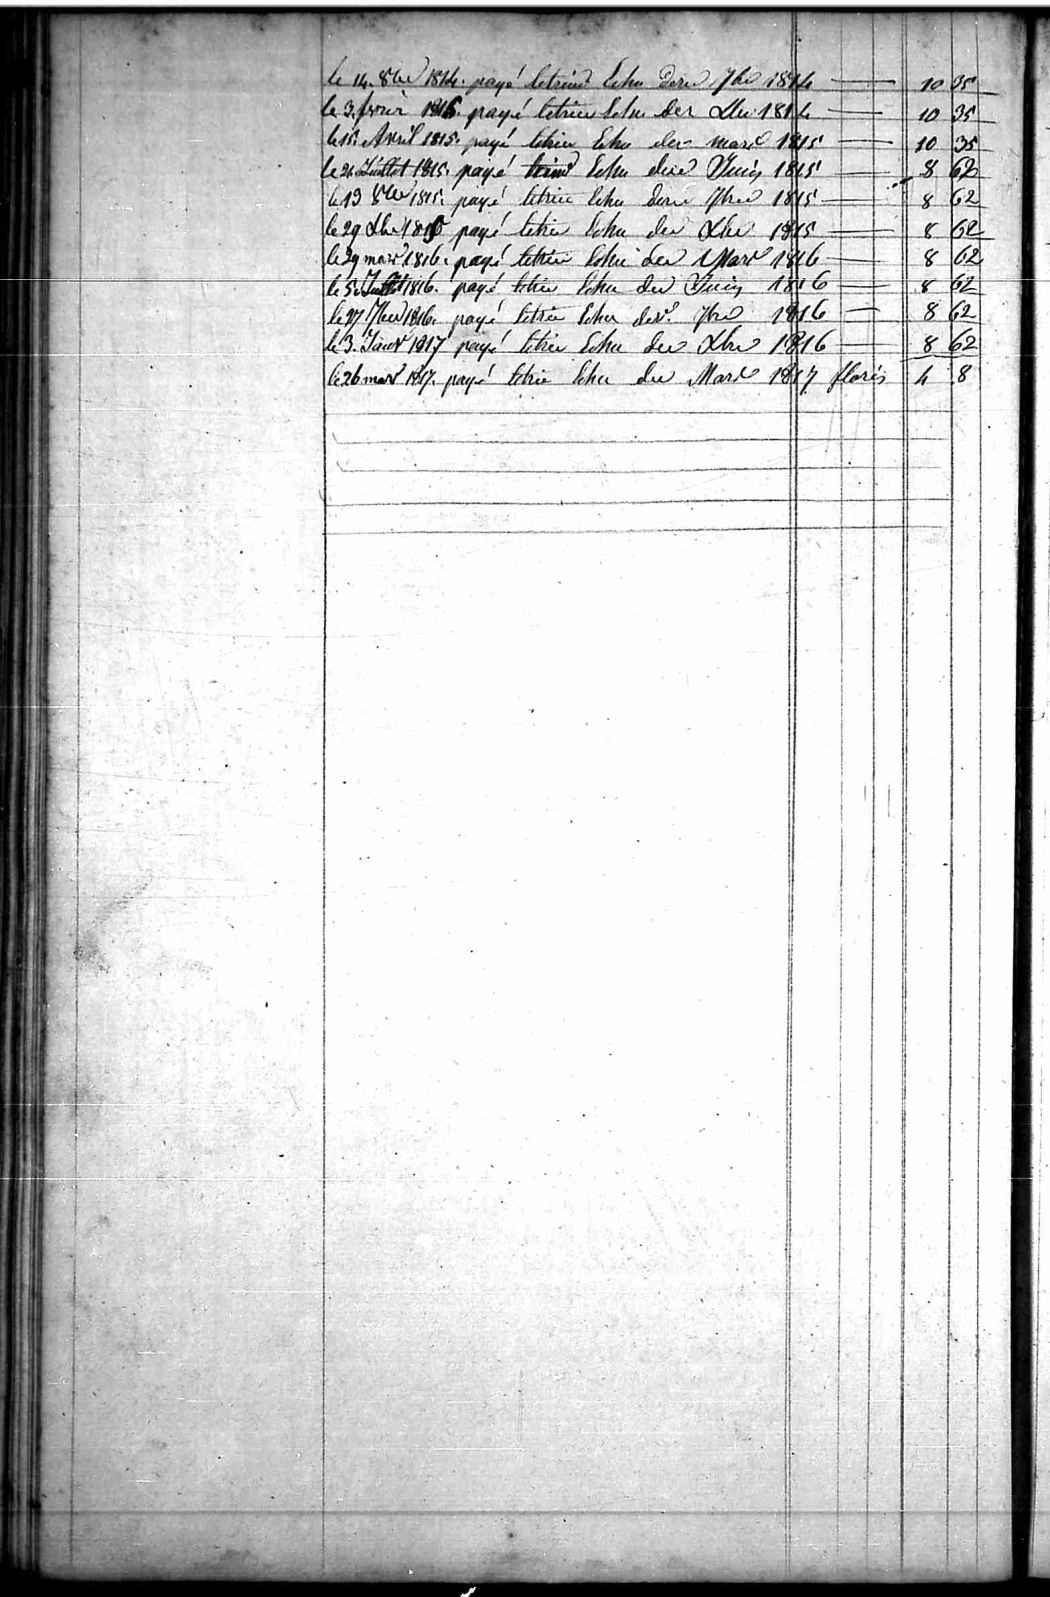 le 14. 8bre 1814. payé le trim Echu derer 7bre 1814 — 10 35
le 3. fevrier 1815. payé letrim Echu der Xbre 1814 — 10 35
le 15. Avril 1815. payé letrim Echu der mars 1815 — 10 35
le 21. Juillet 1815. payé trim Echu der Juin 1815 — 8 62
le 19 8bre 1815. payé letrim Echu derer 7bre 1815 — 8 62
le 29 Xbre 1815 payé letrim Echu der Xbre 1815 — 8 62
le 29 mars 1816. payé letrim Echu der Mars 1816 — 8 62
le 5. Juillet 1816. payé letrim Echu der Juin 1816 — 8 62
le 27 7bre 1816. payé letrim Echu der. 7bre 1816 — 8 62
le 3. Janvr 1817 payé letrim Echu der Xbre 1816 — 8 62
le 26 mars 1817. payé letrim Echu der Mars 1817 florins 4 8